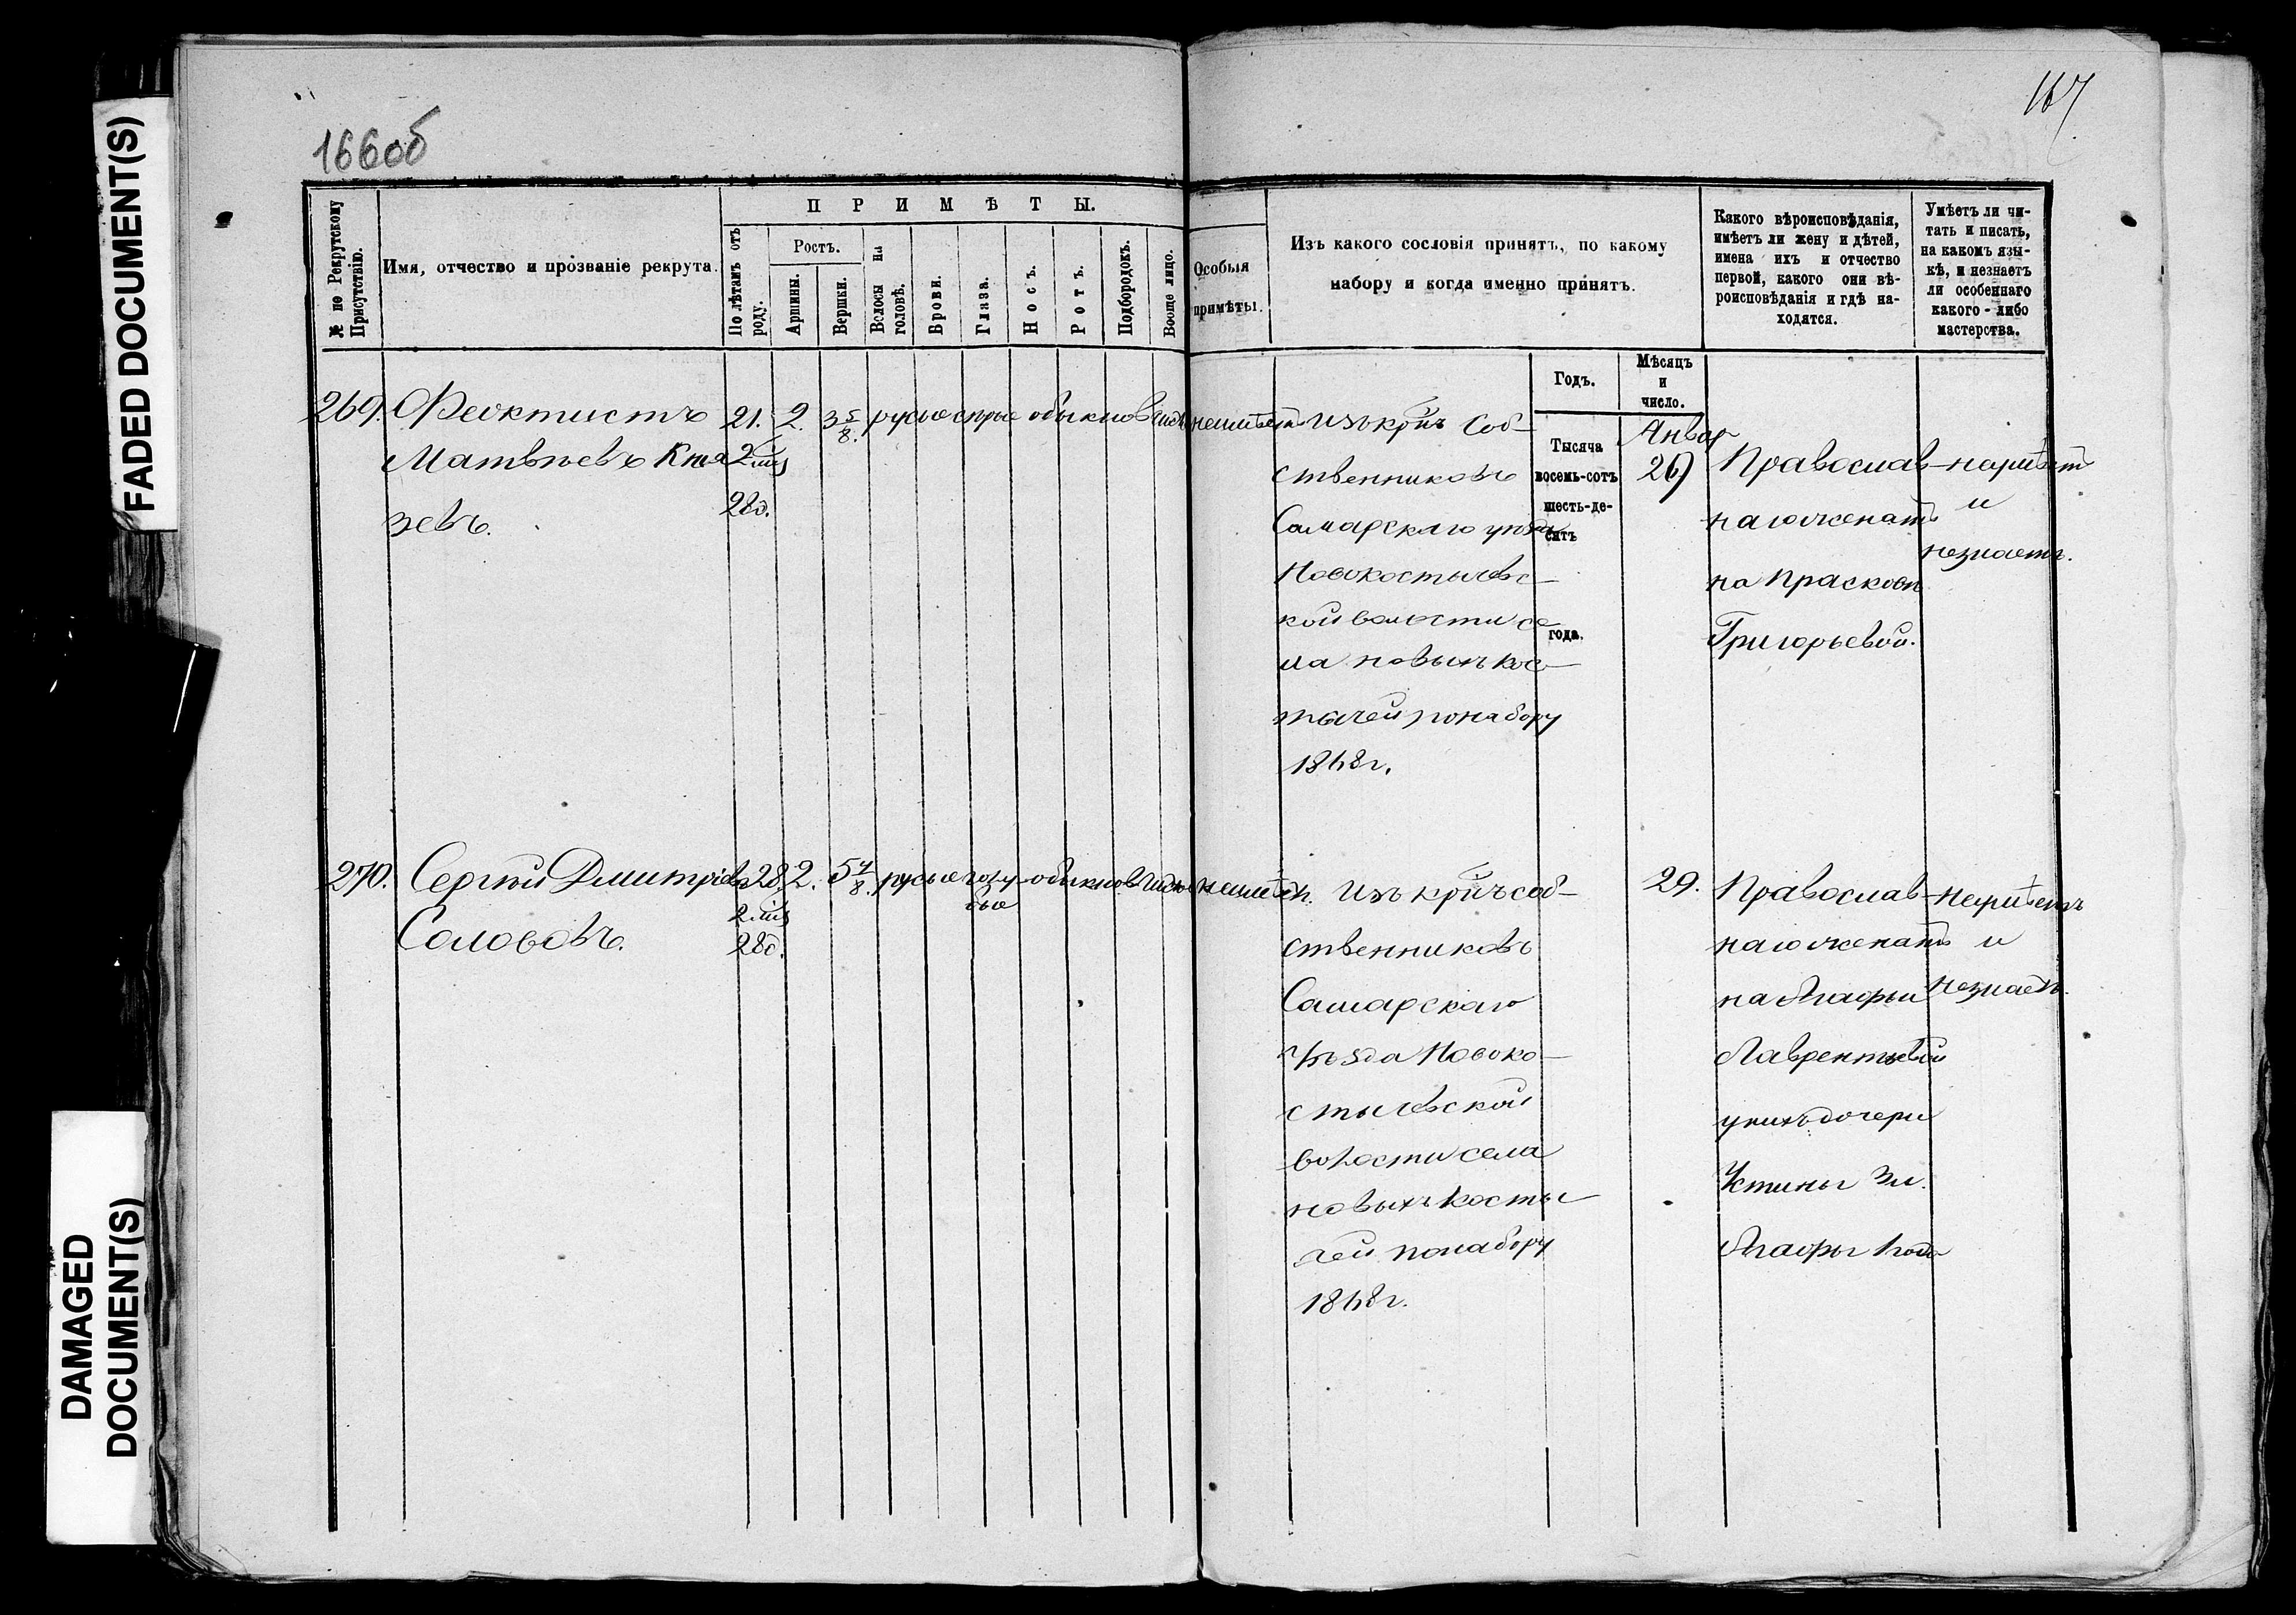 FADED DOCUMENT(S)
DAMAGED
DOCUMENT(S)
166об
167
№ по Рекрутскому Присутствію.
Имя, отчество и прозваніе рекрута.
ПРИМѢТЫ.
По лѣтамъ отъ роду.
Ростъ.
Аршины.
Вершки.
Волосы на головѣ.
Брови.
Глаза.
Носъ.
Ротъ.
Подбородокъ.
Вообще лицо.
Особыя
примѣты.
Изъ какого сословія принятъ, по какому
набору и когда именно принятъ.
Какого вѣроисповѣданія,
имѣетъ ли жену и дѣтей,
имена ихъ и отчество
первой, какого они вѣ-
роисповѣданія и гдѣ на-
ходятся.
Умѣетъ ли чи-
тать и писать,
на какомъ язы-
кѣ, и незнаетъ
ли особеннаго
какого-либо
мастерства.
Годъ.
Мѣсяцъ
и
число.
Тысяча
восемь-сотъ
шесть-де-
сятъ
года.
269. Феоктистъ
Матвѣевъ Кня
зевъ.
21.
28д.
2. 3 5/8. русые сѣрые обыкнов
Изъ кр. Соб-
ственниковъ
Самарскаго уѣзда
Новокостычевс-
кой волости се
ла новыхъ кос-
тычей по набору
1868г.
Январ
29
Православ-
наго женатъ
на Прасковьѣ
Григорьевой.
и
незнаетъ.
270. Сергѣй Дмитріевъ
Солововъ.
28.
28д.
2. 5 4/8. русые голу-
бые
обыкнов
Изъ кр. соб-
ственниковъ
Самарскаго
уѣзда Новоко-
стычевской
волости села
новыхъ косты-
чей по набору
1868г.
29.
Православ-
наго женатъ
на Агафьи
Лаврентьевой
у нихъ дочери
Устинья 3л.
Агафья 1 года
и
незнаетъ.